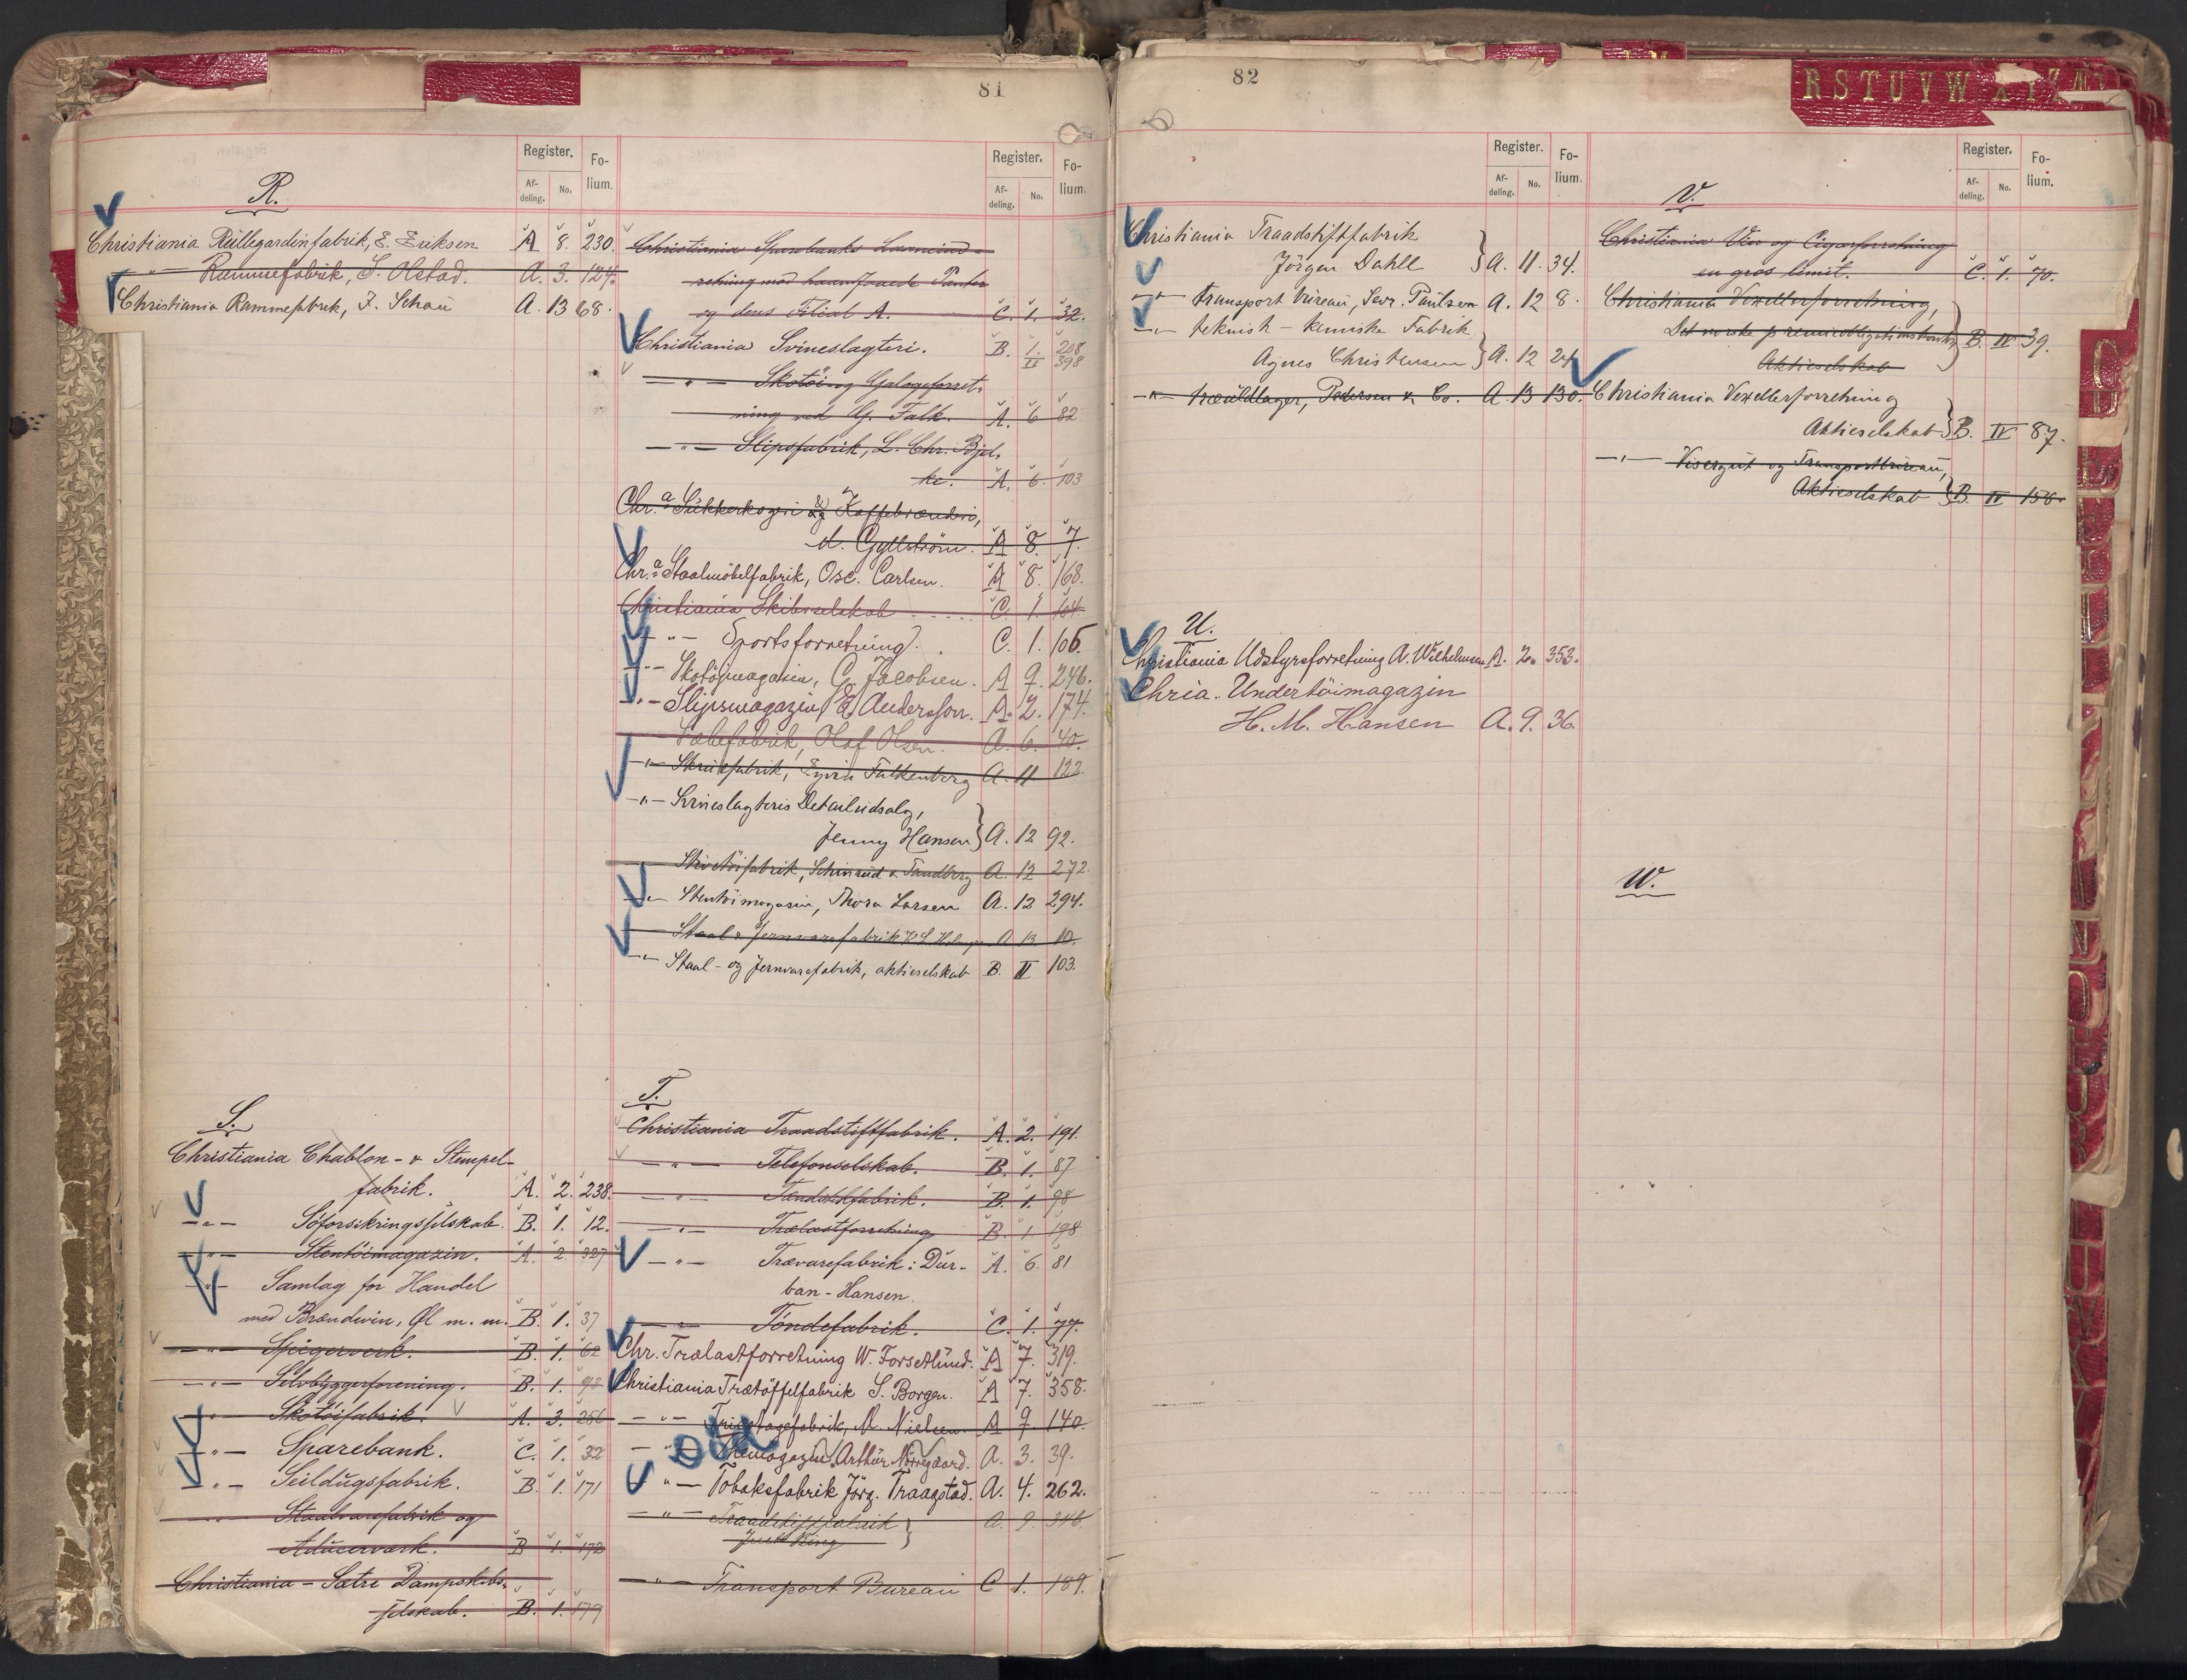 81
Register.
Fo-
lium.
Af-
deling.
No.
R.
Christiania Rüllegardinfabrik, E. Eriksen A 8. 230.
-"- Rammefabrik, S. Olstad. A. 3. 124.
Christiania Rammefabrik, J. Schau A. 13 68.
S.
Christiania Chablon- & Stempel-
fabrik. A. 2. 238.
-"- Söforsikringsselskab. B. 1. 12.
-"- Stentöimagazin. A. 2. 327
-"- Samlag for Handel
med Brændevin, Øl m. m. B. 1. 37
-"- Spigerverk. B. 1. 62
-"- Selvbyggerforening. B. 1. 92
-"- Skotöifabrik. A. 3. 256
-"- Sparebank. C. 1. 32
-"- Seildugsfabrik. B. 1. 171
-"- Staalvarefabrik og
Aducerværk. B 1. 172
Christiania - Sätre Dampskibs-
selskab. B. 1. 179
Register.
Fo-
lium.
Af-
deling.
No.
Christiania Sparebanks
retning mod haandfaaede Panter
og dens Filial A. C. 1. 32.
Christiania Svineslagteri. B. 1. 208
II 398
-"- Skotöi og Galogeforret-
ning ved G. Falk. A. 6 82
-"- Slipsfabrik, L. Chr. Bjel-
ke. A. 6. 103
Chr.a Sukkerkogeri og Kaffebrænderi,
d. Gyllström. A 8. 7.
Chr.a Staalmöbelfabrik, Osc. Carlsen. A 8. 168.
Christiania Skibsselskab C. 1 104
-"- Sportsforretning. C. 1. 106.
-"- Skotöimagasin, G. Jacobsen. A 9. 246.
-"- Slipsmagazin E. Andersson. A. 2. 174.
Sæbefabrik, Olaf Olsen. A. 6. 40.
-"- Skruefabrik, Eyvin Falkenberg A. 11 122
-"- Svineslagteris Detailudsalg,
Jenny Hansen } A. 12 92.
Skotöifabrik, Schinrud & Sandberg A. 12 272.
-"- Stentöimagasin, Thora Larsen A. 12 294.
Staal & Jernvarefabrik A 13 10.
-"- Staal- og Jernvarefabrik, aktieselskab B. II 103.
T.
Christiania Traadstiftfabrik. A. 2. 191.
-"- Telefonselskab. B. 1. 87
-"- Tændstikfabrik. B. 1. 98
-"- Trælastforretning B. 1 198
-"- Trævarefabrik: Dur- A. 6. 81
ban-Hansen.
-"- Töndefabrik. C. 1. 77.
Chr. Trælastforretning W. Forsetlund. A 7. 319.
Christiania Trætöffelfabrik S. Borgen. A 7. 358.
-"- Tricotagefabrik, M. Nielsen. A 9 140.
-"- Themagazin Arthur Nörregaard. A. 3. 39.
-"- Tobaksfabrik Jörg. Traagstad. A. 4. 262.
-"- Traadstiftfabrik } A. 9. 346.
Just Ring
-"- Transport Bureau C 1. 189.
82
Register.
Fo-
lium.
Af-
deling.
No.
Christiania Traadstiftfabrik
Jörgen Dahll } A. 11. 34.
-"- transport bureau, Sevr. Paulsen A. 12 8.
-"- teknisk-kemiske Fabrik
Agnes Christensen } A. 12 24
-"- træuldlager, Pedersen & Co. A. 13 130.
U.
Christiania Udstyrsforretning A. Wilhelmsen A. 2. 353.
Chria. Undertöimagazin
H. M. Hansen A. 9. 36.
Register.
Fo-
lium.
Af-
deling.
No.
V.
Christiania Vin og Cigarforretning
en gros limit. C. 1. 70.
Christiania Vexellerforretning,
Det norske premieobligationskontor, } B. IV 39.
Aktieselskab
Christiania Vexellerforretning
Aktieselskab } B. IV 87.
-"- Visergut og Transportbureau,
Aktieselskab } B. IV 156.
W.
R S T U V W X Y Z